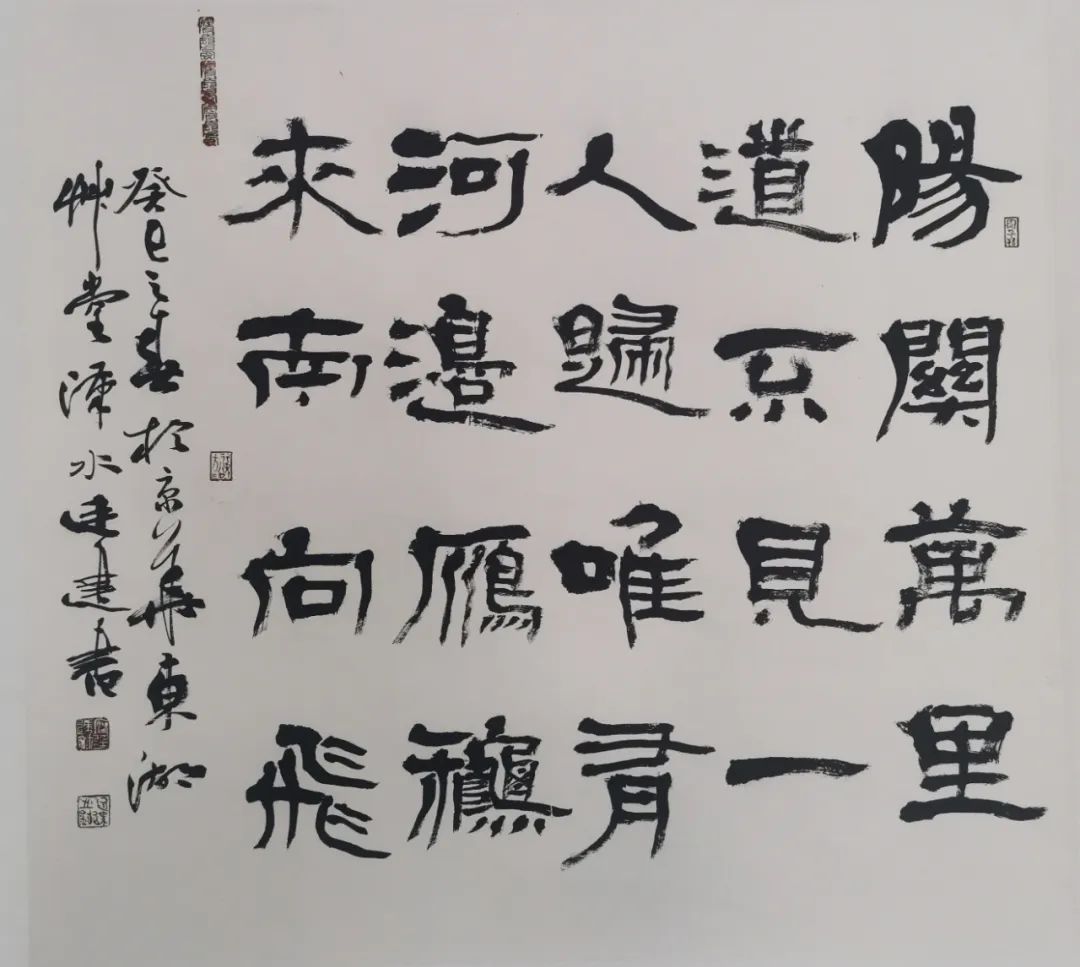 陽關萬里
道不見一
人歸唯有
河邊雁穐
來南向飛
癸巳之春於京華東湖
艸堂溧水建書